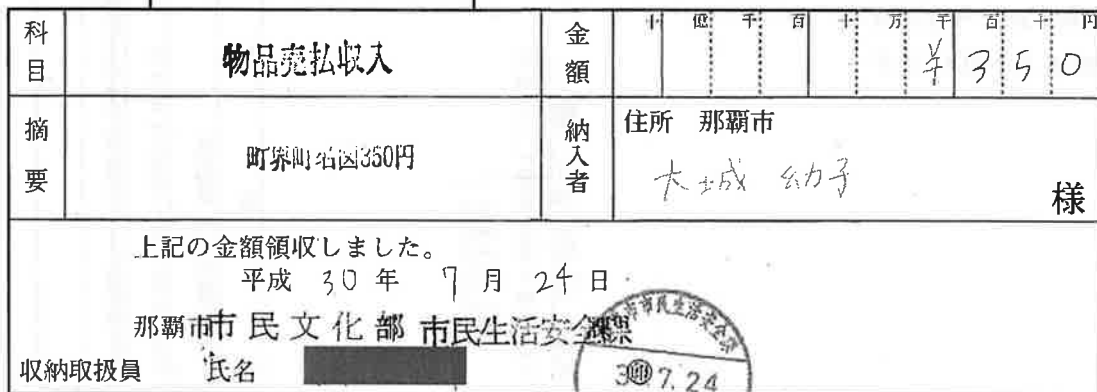 科目 物品売払収入 金額 十 億 千 百 十 万 千 百 十 円
¥350
摘要 町界町名図350円 納入者 住所 那覇市
大城 幼子 様
上記の金額領収しました。
平成 30 年 7 月 24 日
那覇市市民文化部 市民生活安全課
収納取扱員 氏名
市市民生活安全課
30 7.24